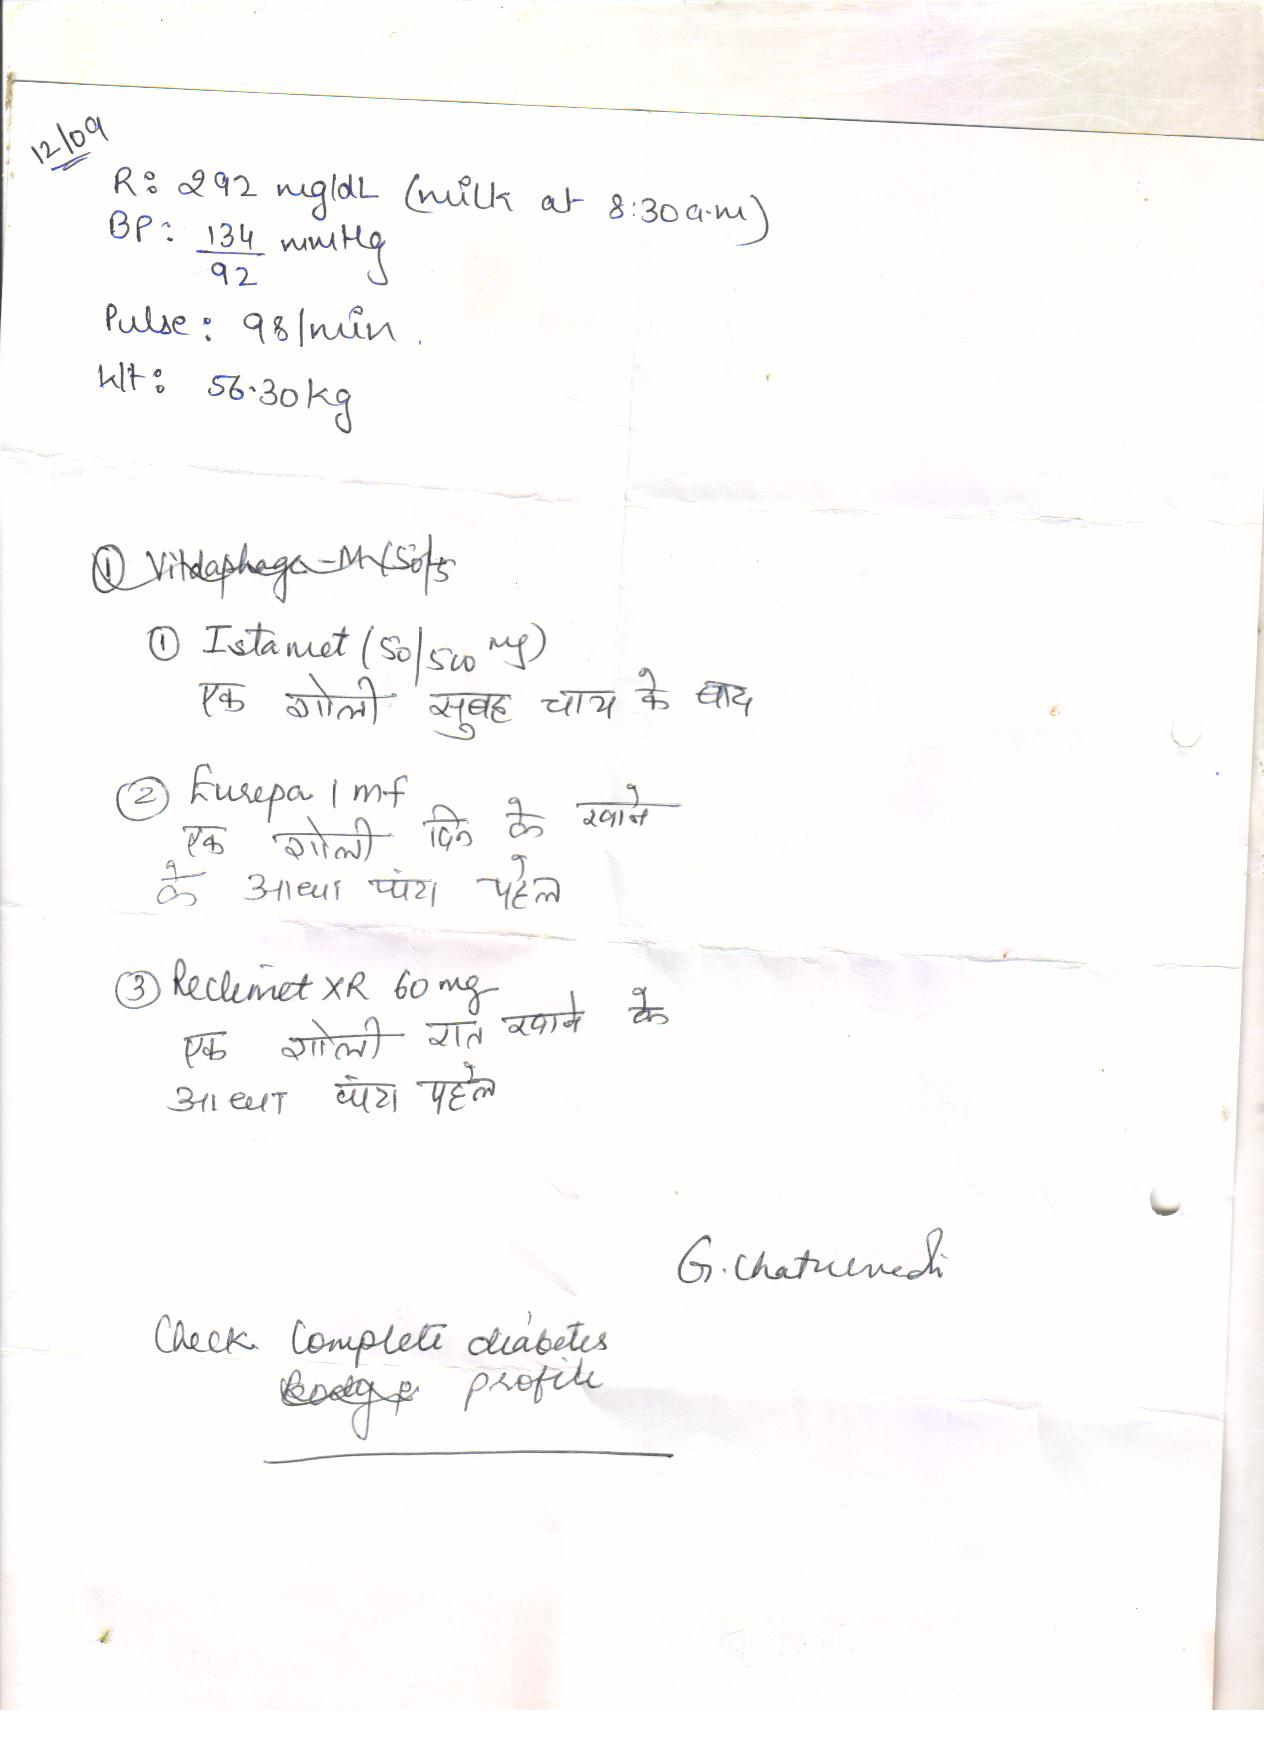 12/09
R: 292 mg/dL (milk at 8:30 a.m)
BP: 134/92 mmHg
Pulse: 98/min.
Wt: 56.30 kg
① Istamet (50/500 mg)
एक गोली सुबह चाय के बाद
② Eurepa 1 mg
एक गोली दिन के खाने
के आधा घंटा पहले
③ Reclimet XR 60 mg
एक गोली रात खाने के
आधा घंटा पहले
G. Chaturvedi
Check Complete diabetes
profile